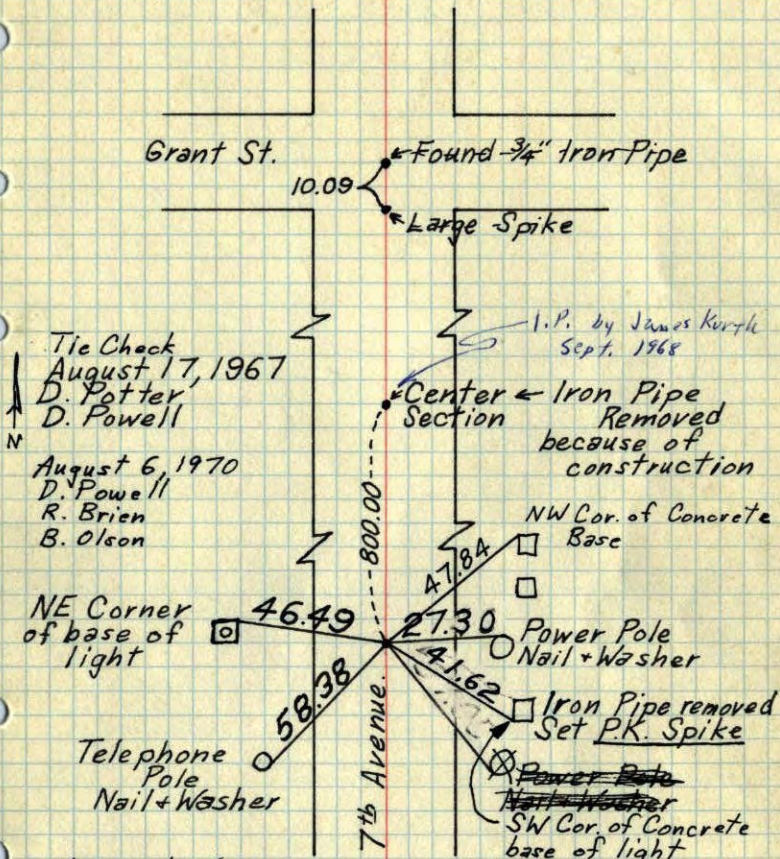 Grant St.
Found 3/4" Iron Pipe
10.09
Large Spike
I.P. by James
Sept. 1968
Tie Check
August 17, 1967
D. Potter
D. Powell
N
August 6, 1970
D. Powell
R. Brien
B. Olson
Center
Section
Iron Pipe
Removed
because of
construction
800.00
NW Cor. of Concrete
Base
47.84
NE Corner
of base of
light
46.49
27.30
Power Pole
Nail + Washer
41.62
Iron Pipe removed
Set P.K. Spike
58.38
Telephone
Pole
Nail + Washer
7th Avenue.
Power Pole
Nail + Washer
SW Cor. of Concrete
base of light